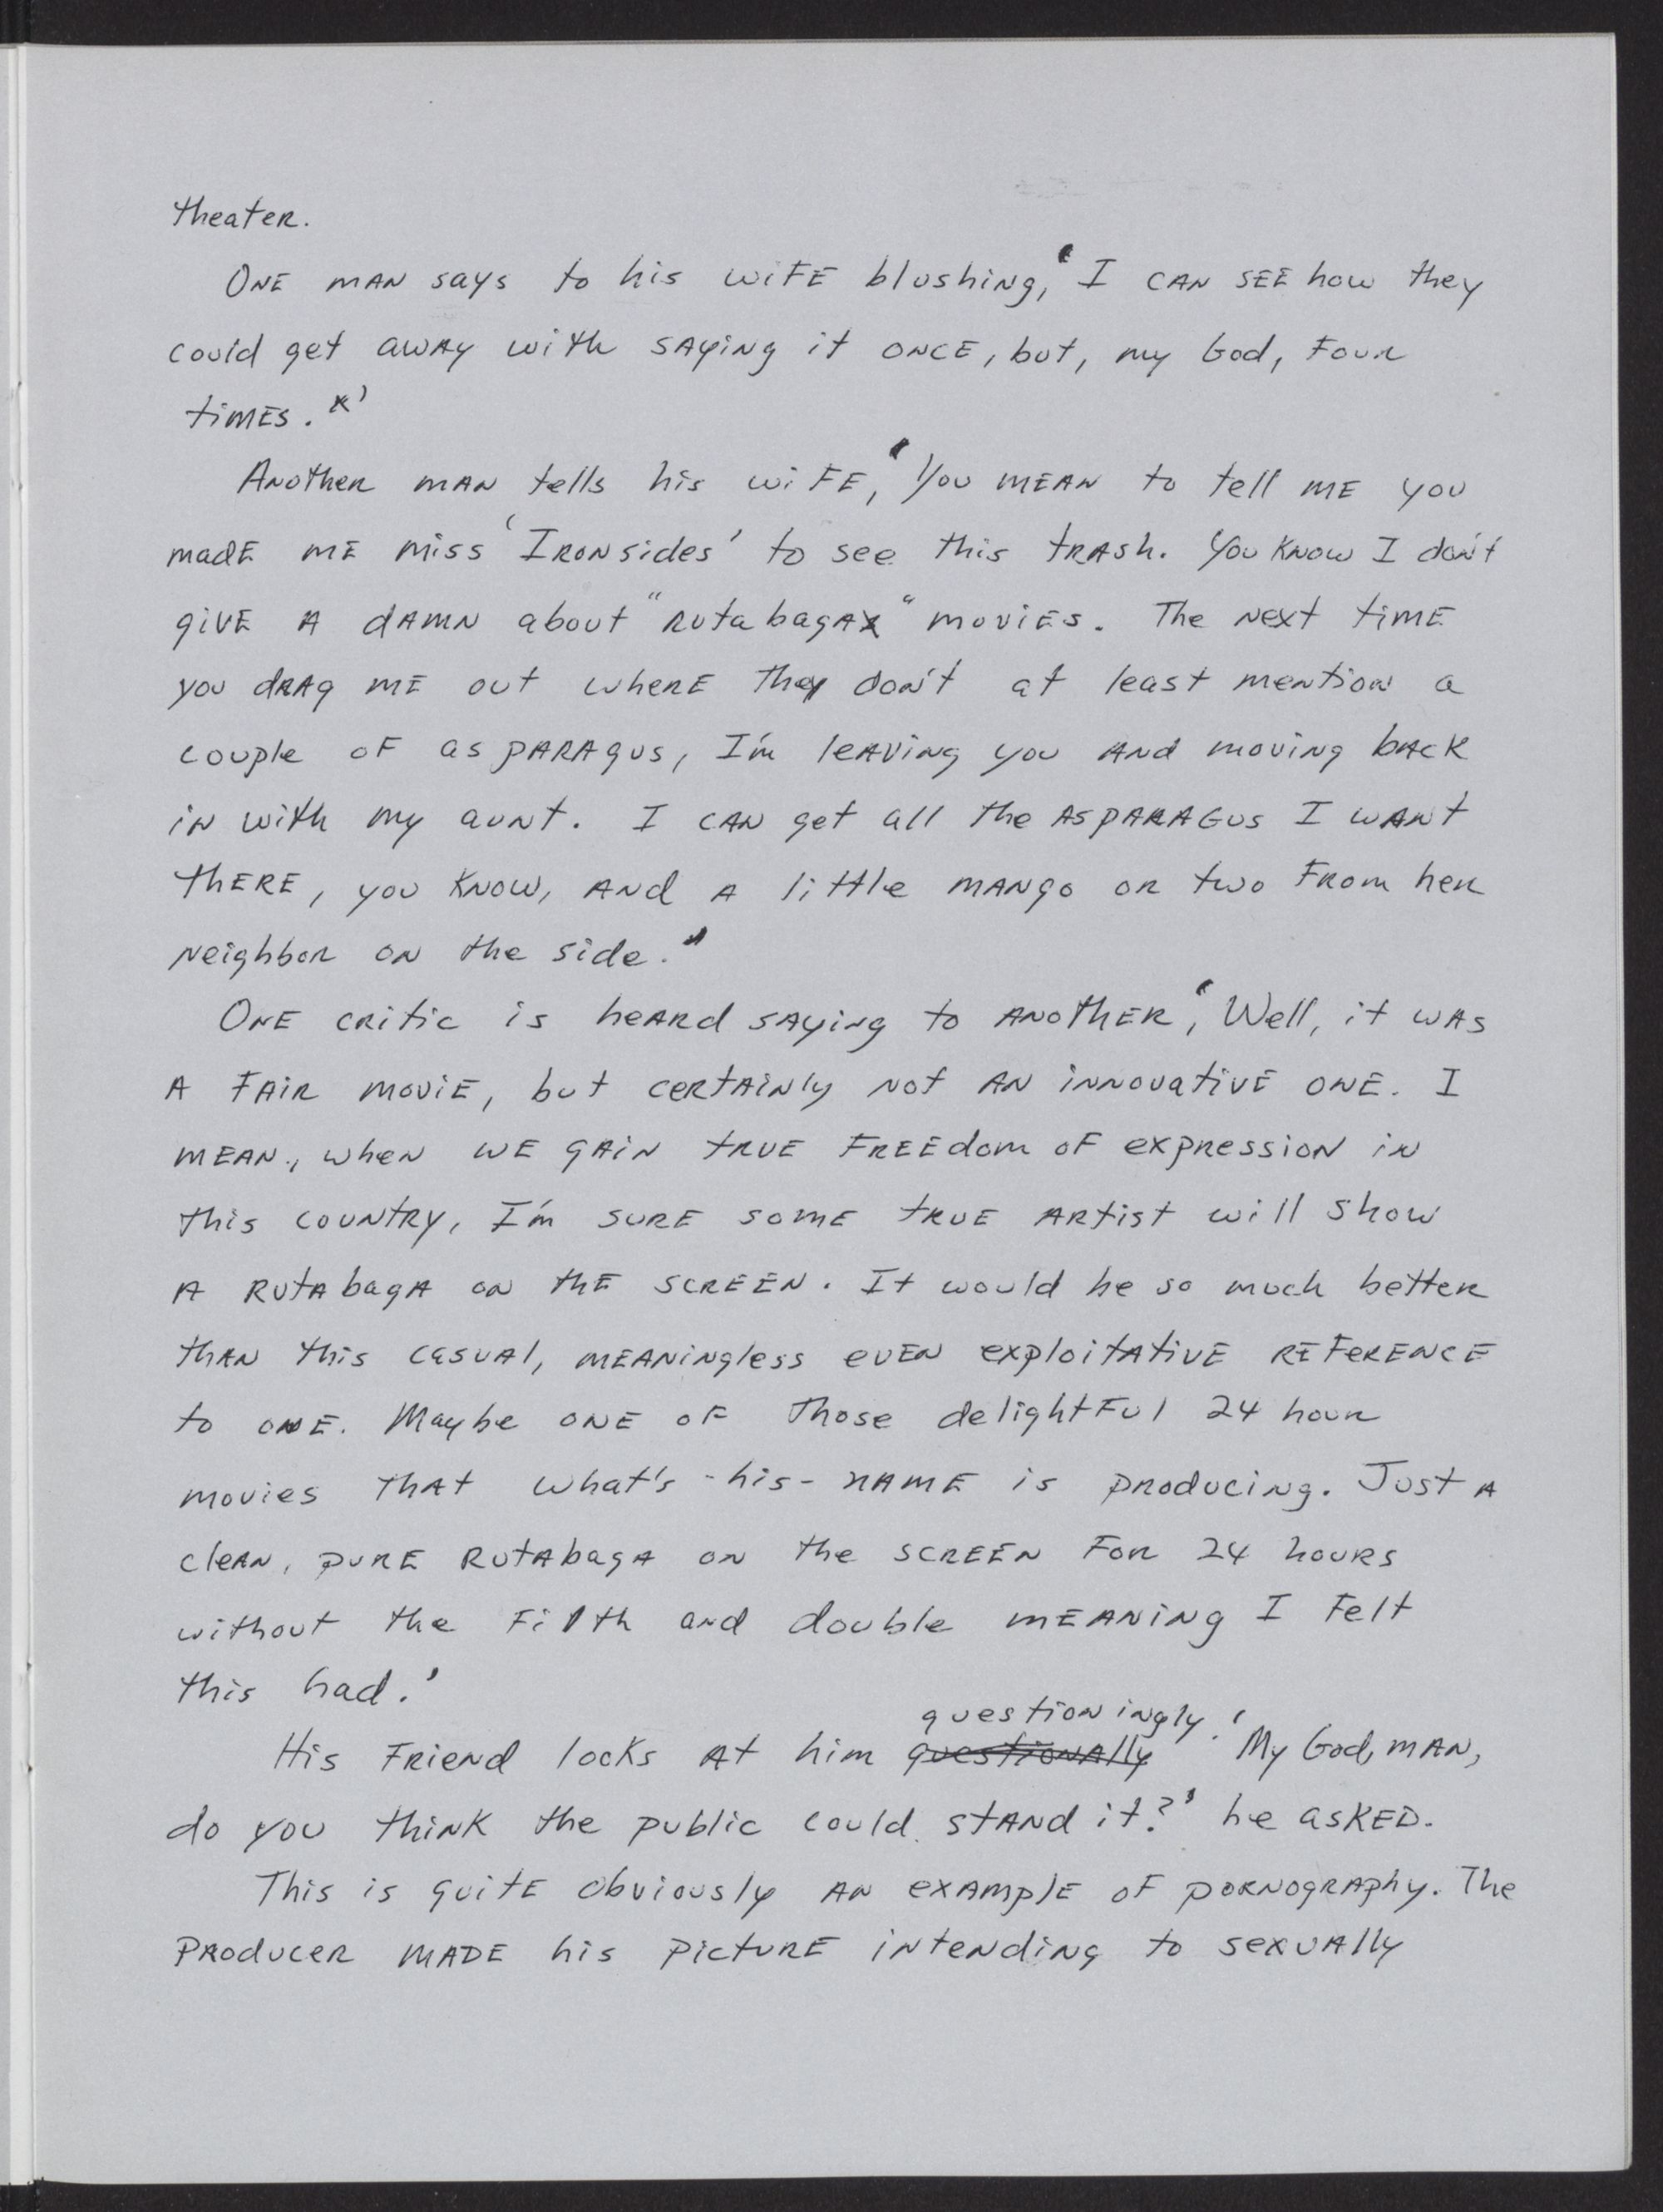 theater.
One man says to his wife blushing, 'I can see how they
could get away with saying it once, but, my God, four
times.'
Another man tells his wife, 'You mean to tell me you
made me miss 'Ironsides' to see this trash. You know I don't
give a damn about "rutabaga" movies. The next time
you drag me out where they don't at least mention a
couple of asparagus, I'm leaving you and moving back
in with my aunt. I can get all the asparagus I want
there, you know, and a little mango or two from her
neighbor on the side.'
One critic is heard saying to another, 'Well, it was
a fair movie, but certainly not an innovative one. I
mean, when we gain true freedom of expression in
this country, I'm sure some true artist will show
a rutabaga on the screen. It would be so much better
than this casual, meaningless even exploitative reference
to one. Maybe one of those delightful 24 hour
movies that what's-his-name is producing. Just a
clean, pure rutabaga on the screen for 24 hours
without the filth and double meaning I felt
this had.'
questioningly.
His friend looks at him questionally 'My God, man,
do you think the public could stand it?' he asked.
This is quite obviously an example of pornography. The
producer made his picture intending to sexually